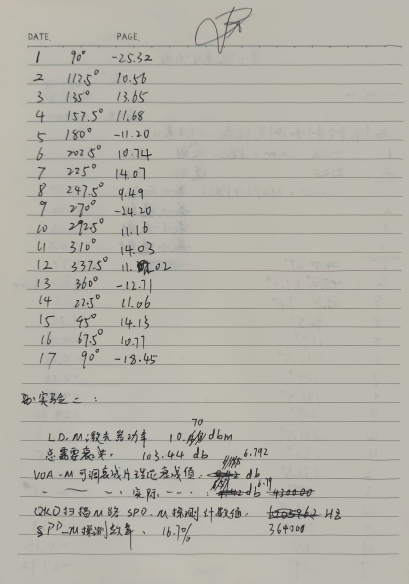 DATE. PAGE.
1 90° -25.32
2 112.5° 10.56
3 135° 13.65
4 157.5° 11.68
5 180° -11.20
6 202.5° 10.74
7 225° 14.07
8 247.5° 9.49
9 270° -24.20
10 292.5° 11.16
11 310° 14.03
12 337.5° 11.02
13 360° -12.71
14 22.5° 11.06
15 45° 14.13
16 67.5° 10.77
17 90° -18.45
实验二:
70
LD-M 激光器功率 10. dbm
总需要衰减. 103.44 db 6.792
VOA-M 可调衰减片理论衰减值: db
实际 db 6.79
QKD 扫描 SPD-M 探测计数值: Hz
SPD-M 探测效率. 16.7% 364000